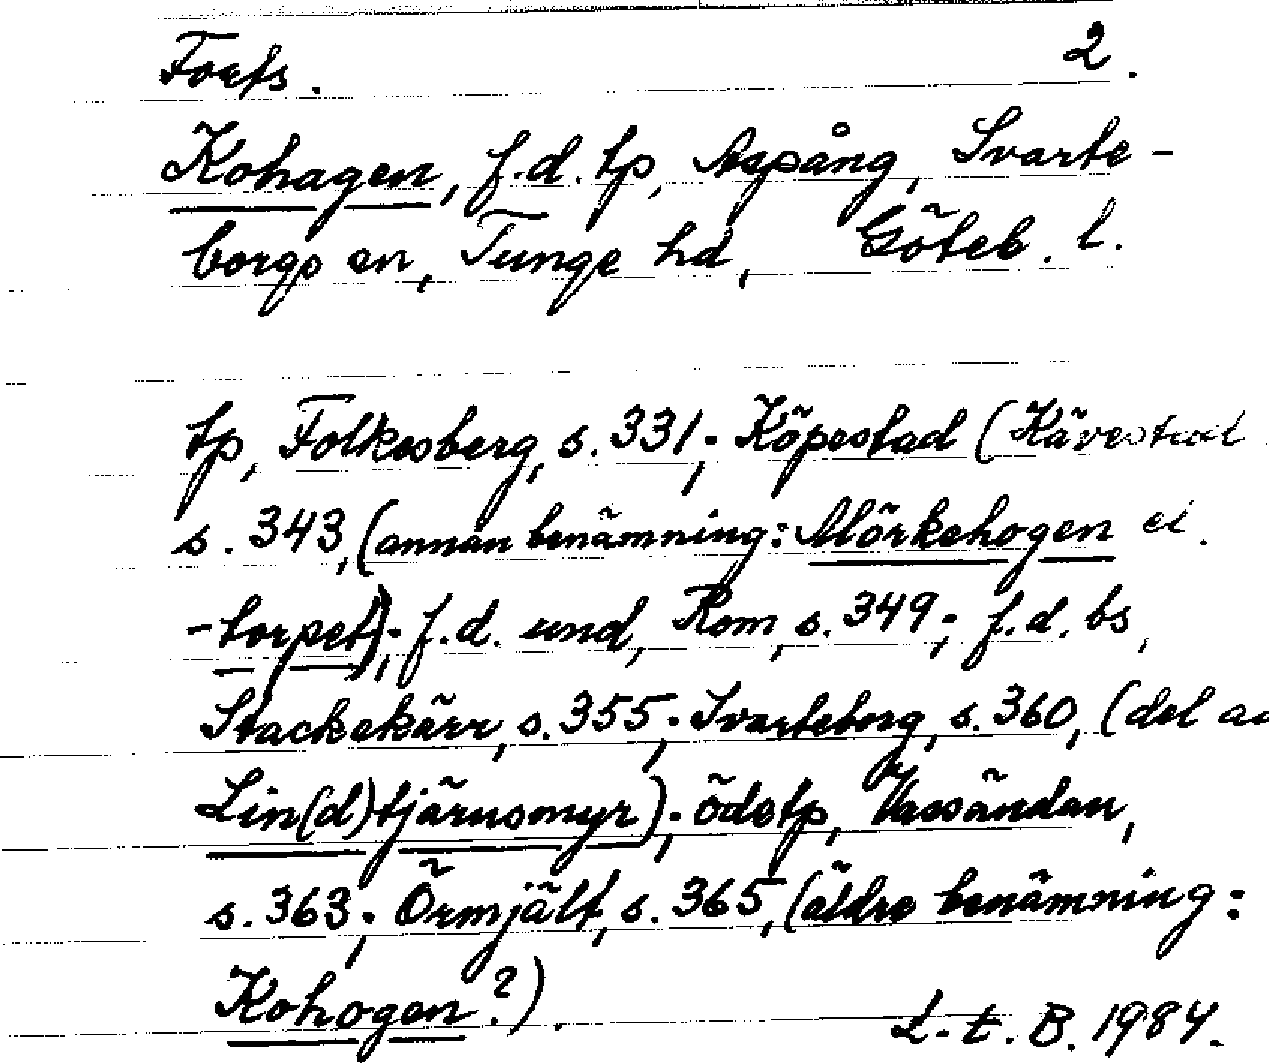 Forts. 2.
Kohagen, f.d. tp, Aspång, Svarte-
borgs sn, Tunge hd, Göteb. l.
tp, Folkesberg, s. 331; Köpestad (Kävestad
s. 343, (annan benämning: Mörkehogen el.
-torpet); f.d. und, Rom, s. 349; f.d. bs,
Stackekärr, s. 355; Svarteborg, s. 360, (del av
Lin(d)tjärnsmyr); ödetp, Vassändan,
s. 363; Örmjält, s. 365, (äldre benämning:
Kohogen?). L.t.B. 1984.